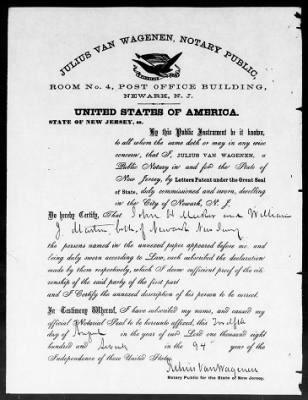 JULIUS VAN WAGENEN, NOTARY PUBLIC,
ROOM No. 4, POST OFFICE BUILDING,
NEWARK, N. J.
UNITED STATES OF AMERICA.
STATE OF NEW JERSEY, ss.
By this Public Instrument be it known,
to all whom the same doth or may in any wise
concern, that I, JULIUS VAN WAGENEN, a
Public Notary in and for the State of
New Jersey, by Letters Patent under the Great Seal
of State, duly commissioned and sworn, dwelling
in the City of Newark, N. J.
Do hereby Certify, That John H Meeker and William
J. Martin, both of Newark New Jersey
the persons named in the annexed paper appeared before me. and
being duly sworn according to Law, each subscribed the declaration
made by them respectively, which I deem sufficient proof of the citi-
zenship of the said party of the first part
and I Certify the annexed description of his person to be correct.
In Testimony Whereof, I have subscribed my name, and caused my
official Notarial Seal to be hereunto affixed, this twelfth
day of August in the year of our Lord one thousand eight
hundred and Seventy in the 94th year of the
Independence of these United States.
Julius VanWagenen
Notary Public for the State of New Jersey.